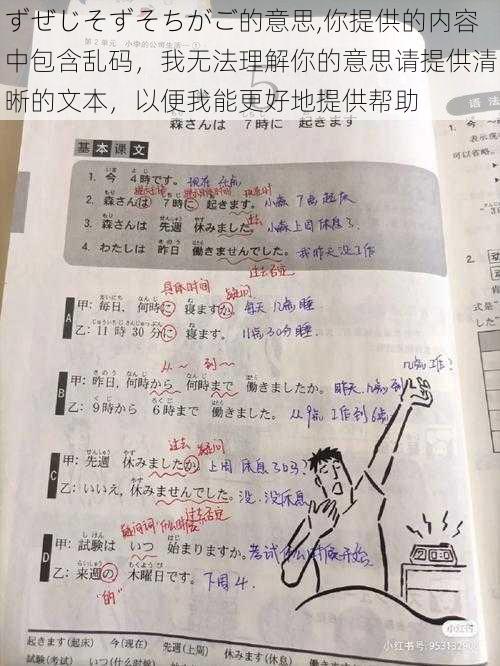 ずぜじそずそちがご的意思,你提供的内容
中包含乱码，我无法理解你的意思请提供清
晰的文本，以便我能更好地提供帮助
第2单元 小李的公司生活
5
森さんは 7時に 起きます
语法
基本课文
1. 今 4時です。 现在 4点
2. 森さんは 7時に 起きます。 小森 7点起床
3. 森さんは 先週 休みました。 过去 小森上周休息了
4. わたしは 昨日 働きませんでした。 我昨天没工作
过去否定
具体时间 疑问
A
甲：毎日，何時に 寝ますか。 每天 几点睡
乙：11時30分に 寝ます。 11点30分睡
从～ 到～
几点工作?
B
甲：昨日，何時から 何時まで 働きましたか。 昨天 几点到
乙：9時から 6時まで 働きました。 从9点工作到6点
过去 疑问
C
甲：先週 休みましたか。 上周休息了吗?
乙：いいえ，休みませんでした。 没、没休息
过去否定
疑问词"什么时候"
D
甲：試験は いつ 始まりますか。 考试什么时候开始
乙：来週の 木曜日です。 下周4.
"的"
小红书
小红书号: 95313290
起きます(起床) 今(现在) 先週(上周) 休みます(休息)
試験(考试) いつ(什么时候)